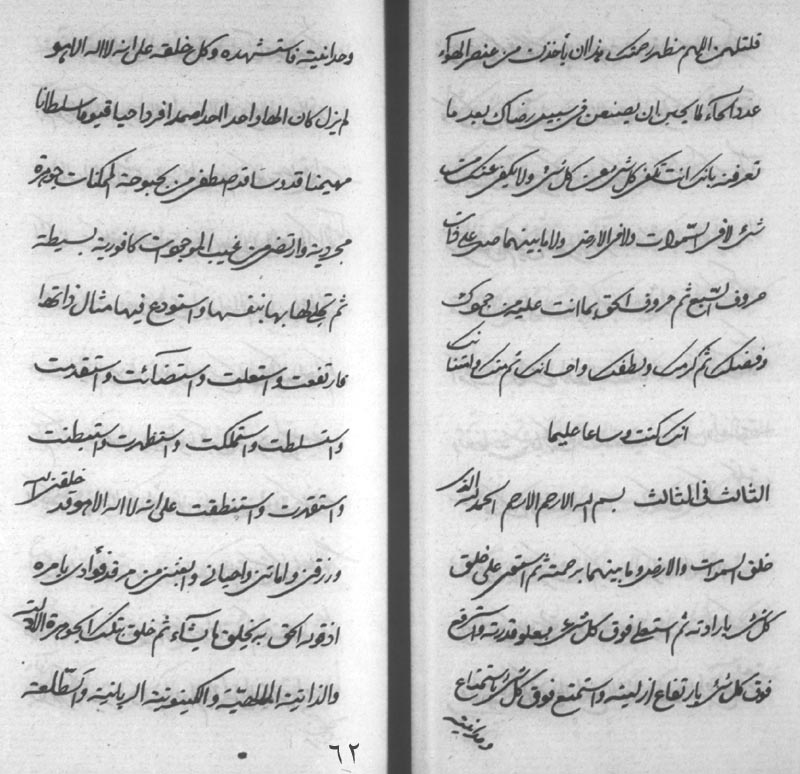 فلتلهمن اللهم مظهر رحمتك هذا ان يأخذن من عنصر الهواء
عدد الحاء لما يحبن ان يصنعن في سبيل رضاك بعد ما
تعرفنه بانك انت تكفي كل شيء عن كل شيء ولا يكفي عنك من
شيء لا في السموات ولا في الارض ولا ما بينهما صل على ذات
حروف السبع ثم حروف الحق بما انت عليه من جودك
وفضلك ثم كرمك ولطفك واحسانك ثم منك وامتنانك
انك كنت وساعا عليما
الثالث في الثالث بسم الله الارحم الارحم الحمد لله الذي
خلق السموات والارض وما بينهما برحمته ثم استقوى على خلق
كل شيء بارادته ثم استعلى فوق كل شيء بعلو قدرته واسترفع
فوق كل شيء بارتفاع ازليته واستمنع فوق كل شيء باستمناع
وحدانيته
وحدانيته فاستشهده وكل خلقه على انه لا اله الا هو
لم يزل كان الها واحدا احدا صمدا فردا حيا قيوما سلطانا
مهيمنا قدوسا قد اصطفى من بحبوحة الممكنات جوهرة
مجردية وارتضى من غيب الموجودات كافورية بسيطة
ثم تجلى لها بها بنفسها واستودع فيها مثال ذاتها
فارتفعت واستعلت واستضائت واستقدمت
واستسلطت واستملكت واستظهرت واستبطنت
واستقهرت واستنطقت على انه لا اله الا هو قد خلقني الله
ورزقني واماتني واحياني وابعثني من مرقد فؤادي بامره
اذ قوله الحق به يخلق ما يشاء ثم خلق بتلك الجوهرة
والذاتية والكينونية الربانية
٦٢